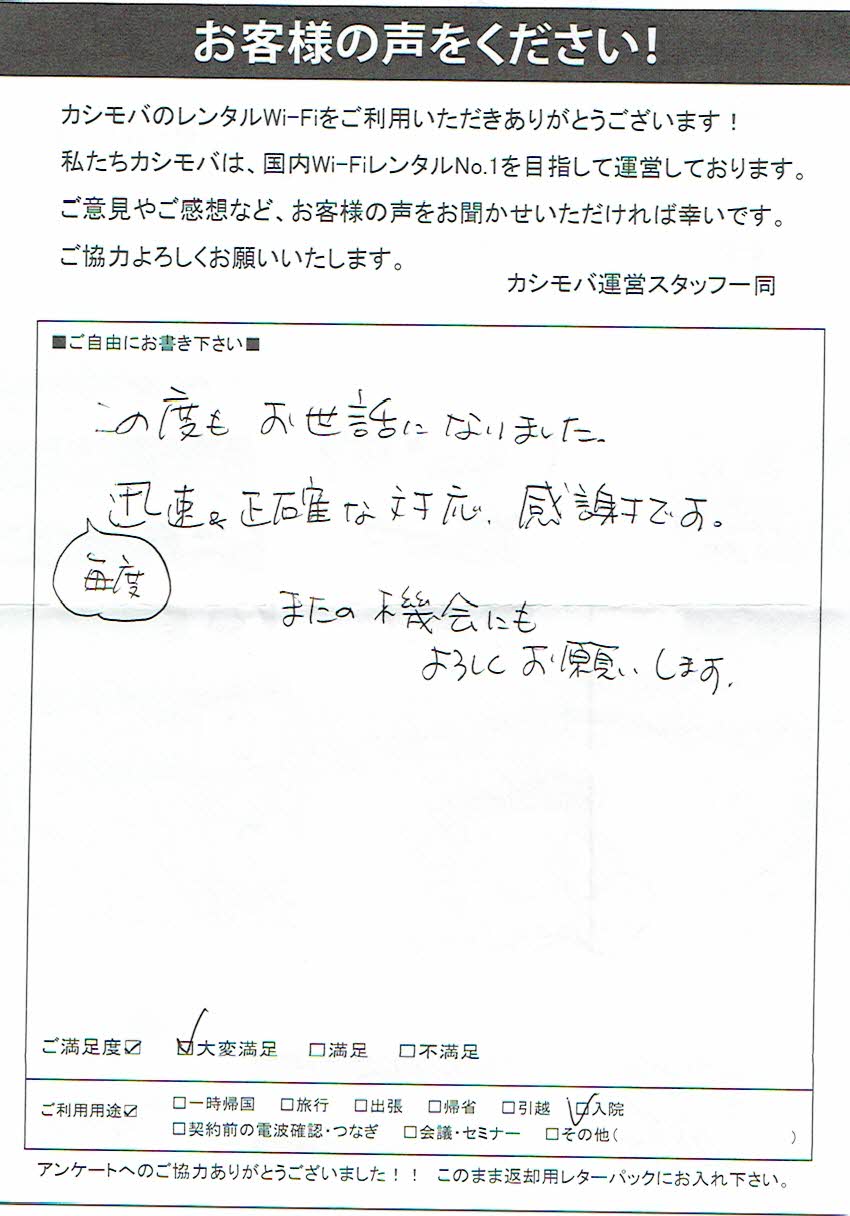 お客様の声をください!
カシモバのレンタルWi-Fiをご利用いただきありがとうございます！
私たちカシモバは、国内Wi-FiレンタルNo.1を目指して運営しております。
ご意見やご感想など、お客様の声をお聞かせいただければ幸いです。
ご協力よろしくお願いいたします。
カシモバ運営スタッフ一同
■ご自由にお書き下さい■
この度も お世話に なりました。
迅速&正確な対応、感謝です。
毎度
またの機会にも
よろしく お願いします。
ご満足度☑ ☑大変満足 □満足 □不満足
ご利用用途☑ □一時帰国 □旅行 □出張 □帰省 □引越 ☑入院
□契約前の電波確認・つなぎ □会議・セミナー □その他( )
アンケートへのご協力ありがとうございました！！ このまま返却用レターパックにお入れ下さい。